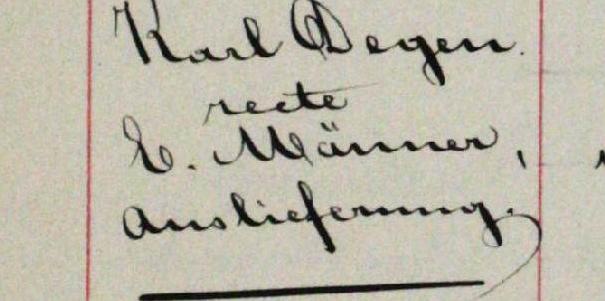 Karl Degen.
recte
E. Männer,
Auslieferung.